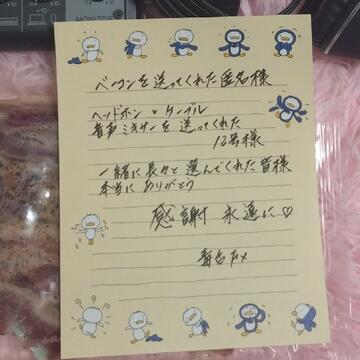 MONITOR
ベーコンを送ってくれた匿名様
ヘッドホン・ケーブル
音声ミキサーを送ってくれた
12号様
一緒に長々と選んでくれた皆様
本当にありがとう
感謝 永遠に♡